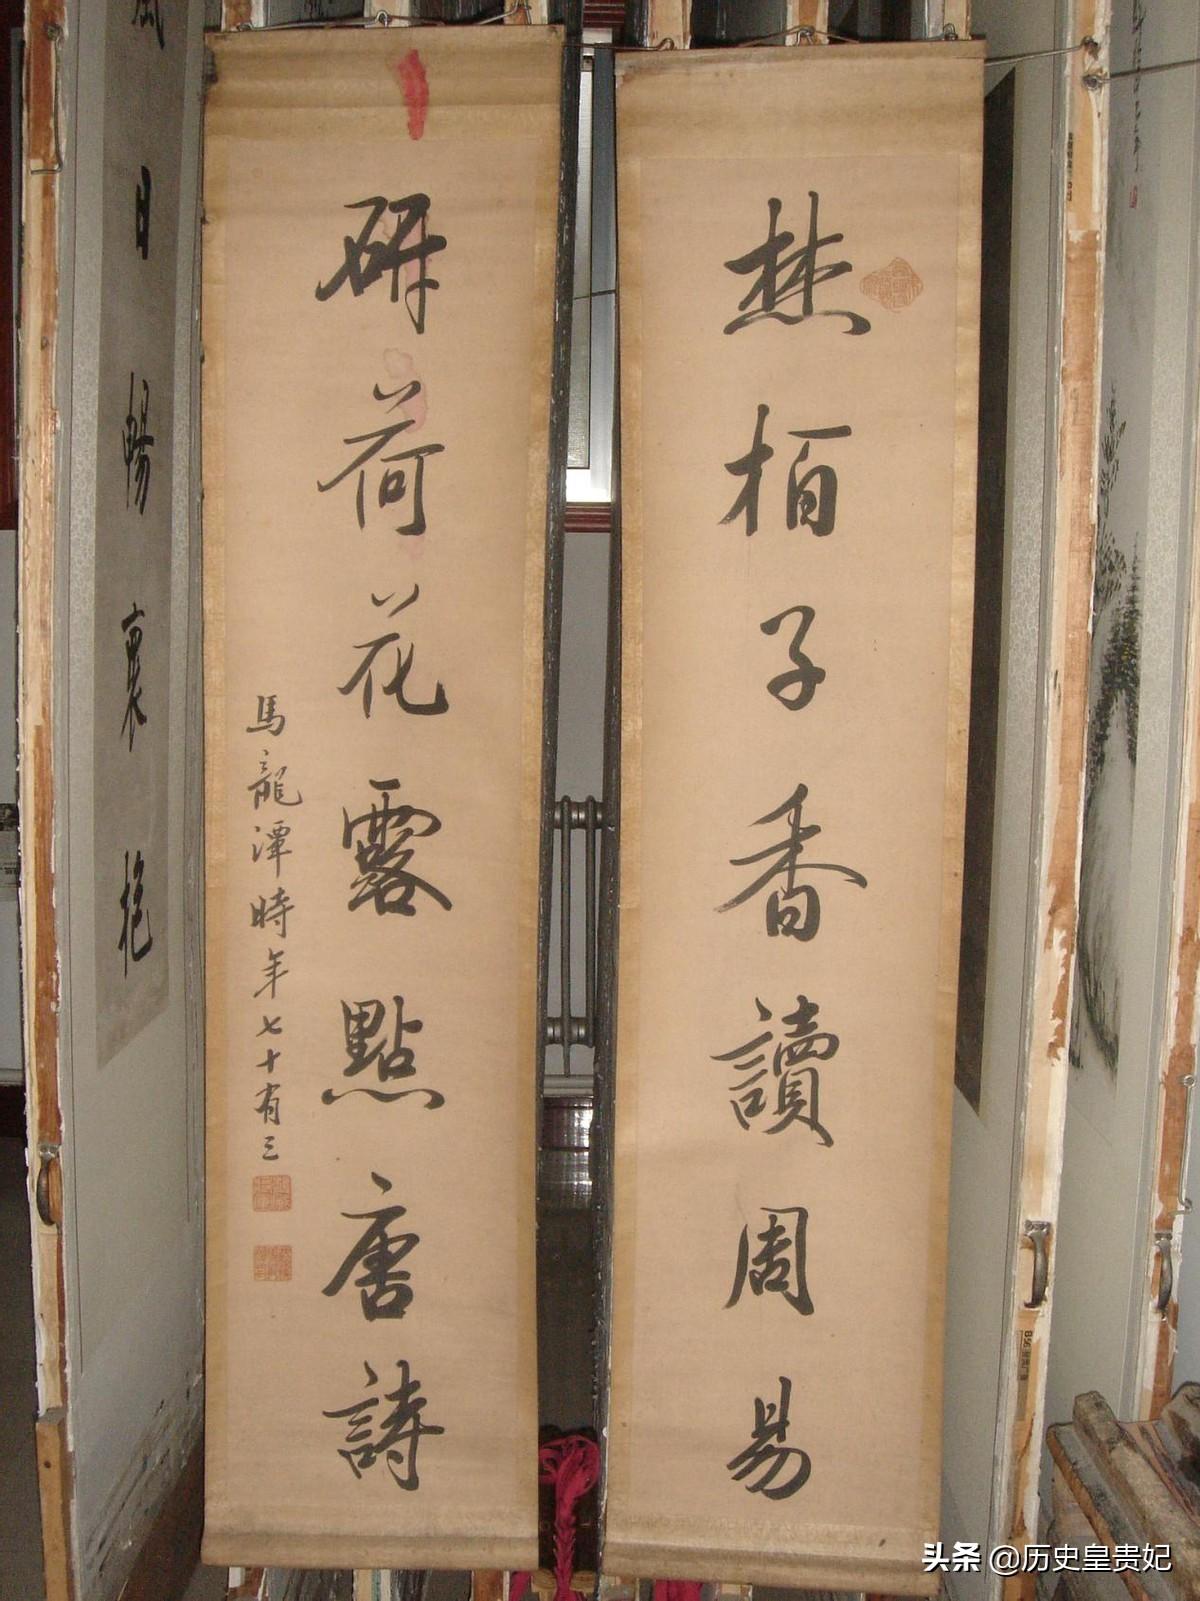 焚柏子香讀周易
研荷花露點唐詩
馬龍潭時年七十有三
風日暢褱抱
头条 @历史皇贵妃